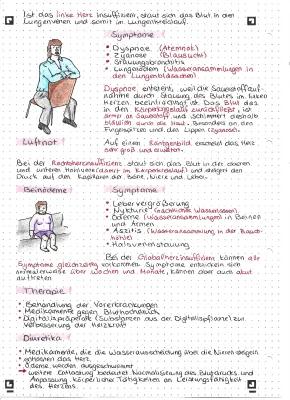 Ist das linke Herz insuffizient, staut sich das Blut in den
Lungenvenen und somit im Lungenkreislauf.
Symptome
• Dyspnoe (Atemnot)
• Zyanose (Blausucht)
• Stauungsbronchitis
• Lungenödem (Wasseransammlungen in
den Lungenbläschen)
Dyspnoe entsteht, weil die Sauerstoffauf-
nahme durch Stauung des Blutes im linken
Herzen beeinträchtigt ist. Das Blut das
in den Körperkreislauf zurückfließt, ist
arm an Sauerstoff und schimmert deshalb
bläulich durch die Haut. Besonders an den
Fingerspitzen und den Lippen (Zyanose).
Luftnot
Auf einem Röntgenbild erscheint das Herz
sehr groß und
Bei der Rechtsherzinsuffizienz staut sich das Blut in der oberen
und unteren Hohlvene (damit im Körperkreislauf) und steigert den
Druck auf den Kapillaren der Beine, Niere und Leber.
Beinödeme
Symptome
• Lebervergrößerung
• Nykturie (nächtliches Wasserlassen)
• Ödeme (Wasseransammlungen) in Beinen
und Armen
• Aszitis (Wasseransammlung in der Bauch-
höhle)
• Halsvenenstauung
Bei der Globalherzinsuffizient können alle
Symptome gleichzeitig vorkommen. Symptome entwickeln sich
normalerweise über Wochen und Monate, können aber auch akut
auftreten
Therapie
• Behandlung der Vorerkrankungen
• Medikamente gegen Bluthochdruck
• Digitalispräperate (Substanzen aus der Digitalispflanze) zur
Verbesserung der Herzkraft
Diuretika
• Medikamente, die die Wasserausscheidung über die Nieren steigern
• entlasten das Herz
• Ödeme werden ausgeschwemmt
→ weitere Entlastung bedeutet Normalisierung des Blutdrucks und
Anpassung körperlicher Tätigkeiten an Leistungsfähigkeit
des Herzens